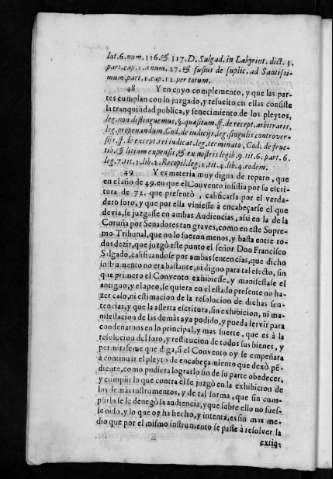 lat. 6. num. 116. & 117. D. Salgad. in Labyrint. dict. 1.
part. cap. 1. num. 27. & fusius de suplic. ad Santissi-
mum part. 1. cap. 12. per totum.
48 Y en cuyo complemento, y que las par-
tes cumplan con lo juzgado, y resuelto en ellas consiste
la tranquilidad publica, y fenecimiento de los pleytos,
leg. non distinguemus, §. quasitum. ff. de recept. arbitrares,
leg. properandum, Cod. de iudicijs, leg. singulis controver-
sijs, ff. de except. rei iudicat. leg. terminato, Cod. de fruc-
tib. & litium expensis, & ex nostris legib. 9. tit. 6. part. 6.
leg. 7. tit. lib. 4. Recopil. leg. 1. tit. 4. lib. 4. eodem.
49 Y es materia muy digna de reparo, que
en el año de 49. en que el Convento insistia por su escri-
tura de 72. que presentò, calificarla por el verda-
dero foro, y que por ella viniesse à encabeçarse el que
devia, se juzgasse en ambas Audiencias, assi en la de la
Coruña por Senadores tan graves, como en este Supre-
mo Tribunal, que no lo fueron menos, y hasta entre to-
dos dezir, que juzgò este punto el señor Don Francisco
Salgado, calificandose por ambas sentencias, que dicho
instrumento no era bastante, ni digno para tal efecto, sin
que primero el Convento exhibiesse, y manifestasse el
antiguo, y el apeo, se quiera en el estado presente no ha-
zer calo, ni estimacion de la resolucion de dichas sen-
tencias, y que la asserta escritura, sin exhibicion, ni ma-
nifestacion de las demàs aya podido, y pueda servir para
condenarlos en lo principal, y mas fuerte, que es à la
resolucion del foro, y restitucion de todos sus bienes, y
permitirse que diga, si el Convento oy se empeñara
à continuar el pleyto de encabeçamiento que dexò pe-
diente, como pudiera lograrlo sin de su parte obedecer,
y cumplir lo que contra el se juzgò en la exhibicion de
los demàs instrumentos, y de tal forma, que sin cum-
plirla se le denegò la audiencia, y que sobre ello no fues-
se oìdo, y lo que oy ha hecho, y intenta, es sin mas me-
dio que por el mismo instrumento se passe à resolver la